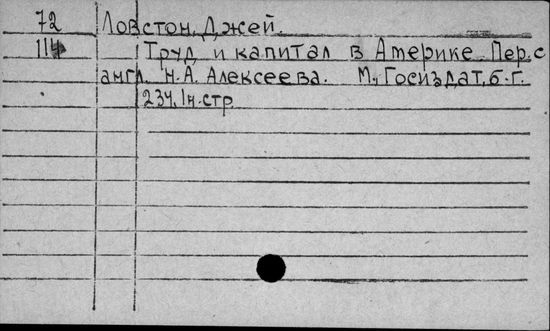 72 Ловстон, Джей.
114 Труд и капитал в Америке. Пер. с
англ. Н.А. Алексеева. М., Госиздат, б.г.
234, 1н. стр.